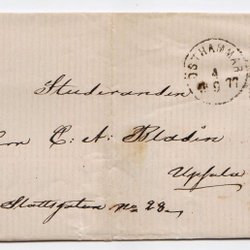 ÖSTHAMMAR
4
9
77
Studeranden
C. A. Bladin
Upsala
Slottsgatan No 28